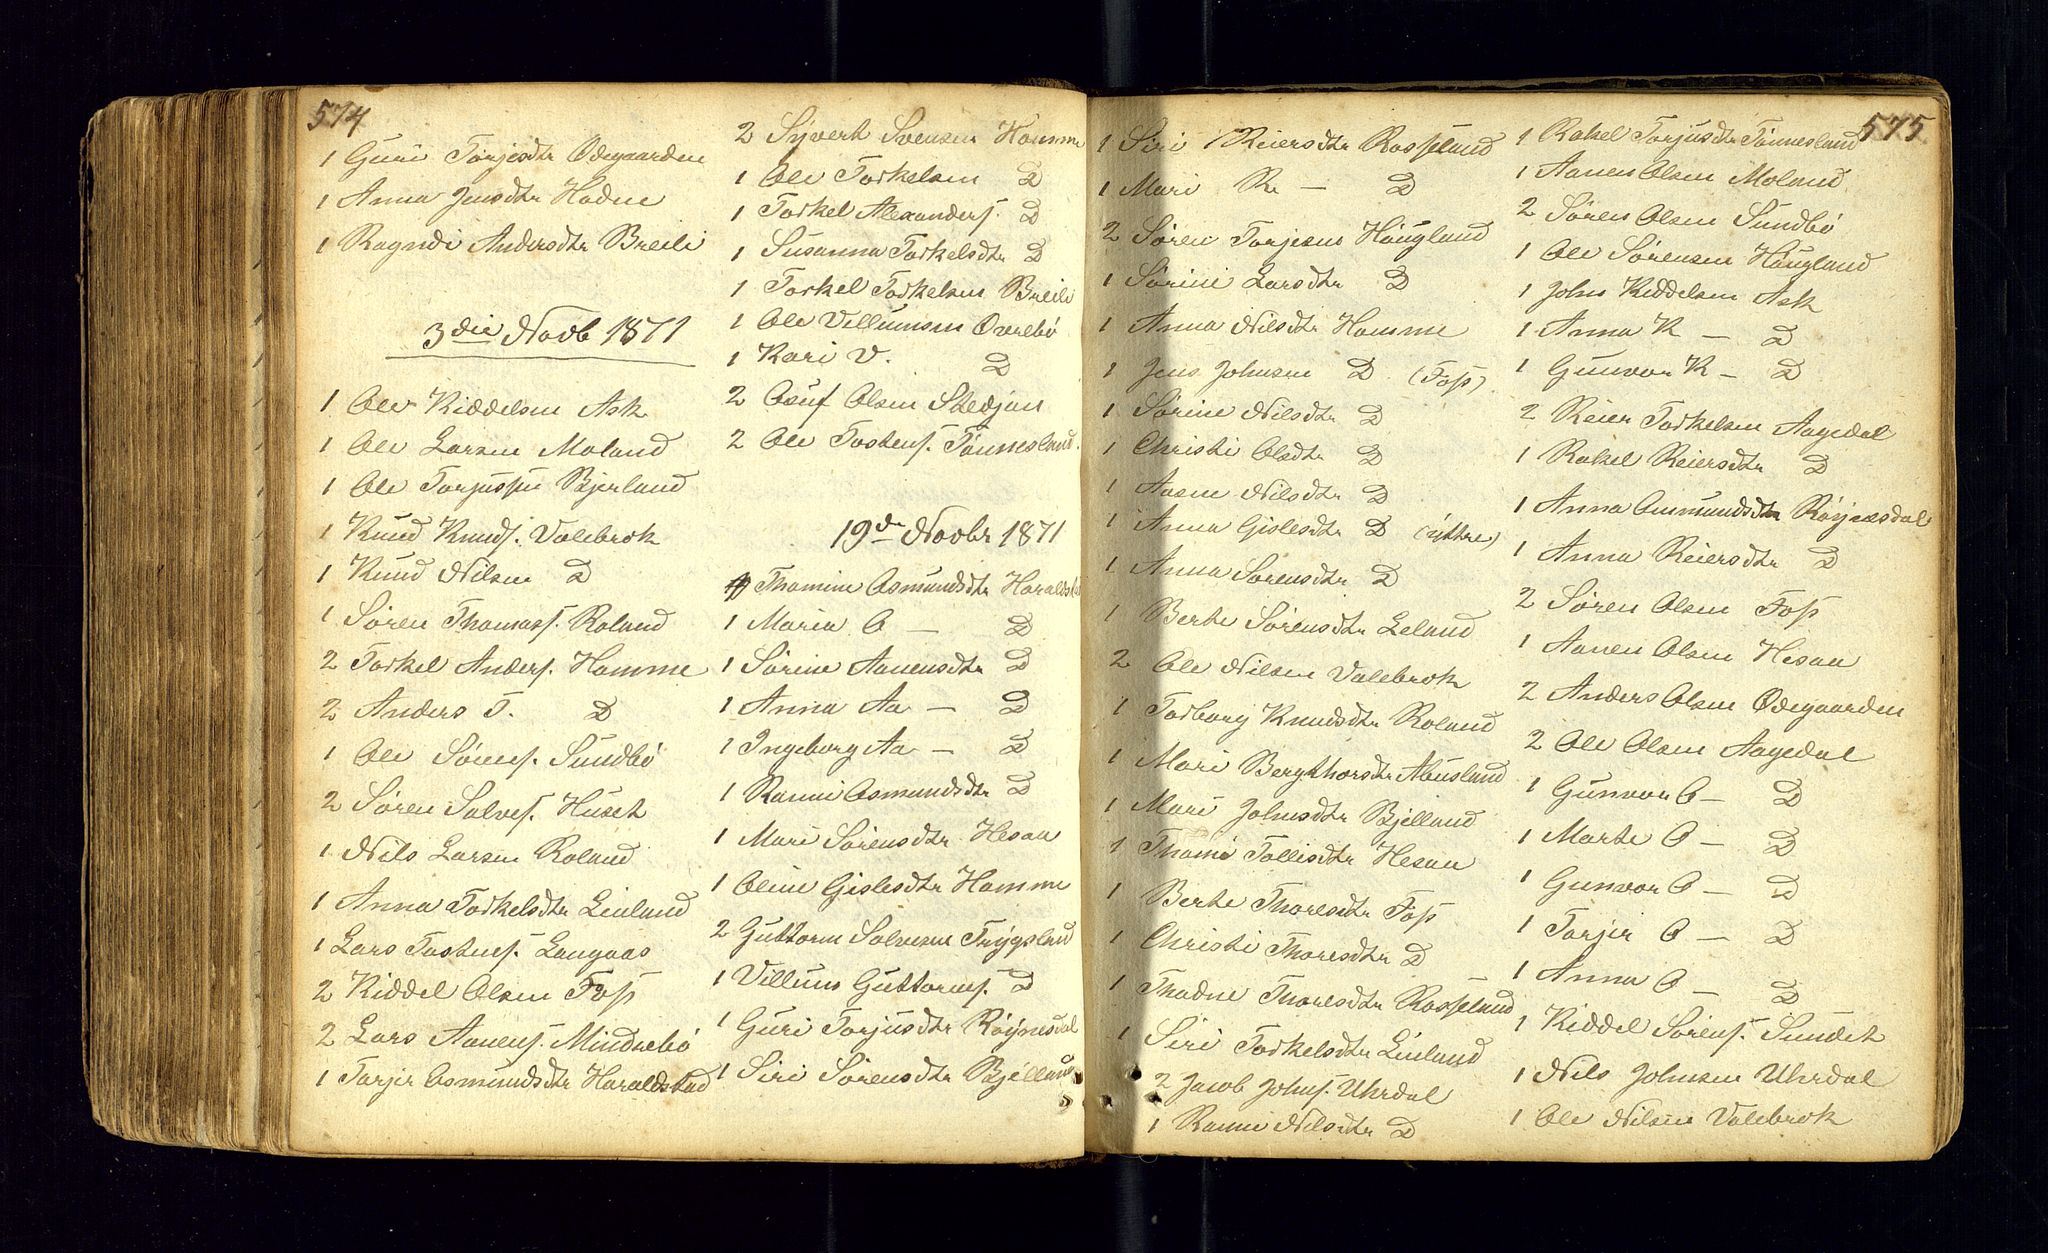 574
1 Guri Torjesdtr Ødegaarden
1 Anna Jensdtr Hodne
1 Ragndi Andersdtr Breili
3die Novb 1871
1 Ole Kiddelsen Ask
1 Ole Larsen Moland
1 Ole Torjussen Bjerland
1 Knud Knuds. Valebrok
1 Knud Nilsen D
1 Søren Thomass. Roland
2 Torkel Anders. Homme
2 Anders T. D
1 Ole Sørens. Sundbø
2 Søren Salves. Huset
1 Nils Larsen Roland
1 Anna Torkelsdtr Linland
1 Lars Tostens. Langaas
2 Kiddel Olsen Foss
2 Lars Aanens. Mindrebø
1 Torjer Osmundsdtr Haraldstad
2 Syvert Svensen Homme
1 Ole Torkelsen D
1 Torkel Alexanders. D
1 Susanna Torkelsdtr D
1 Torkel Torkelsen Breili
1 Ole Villumsen Øvrebø
1 Kari V. D
2 Osuf Olsen Stedjan
2 Ole Tostens. Tønnesland.
19de Novbr 1871
1 Thomine Osmundsdtr Haraldstad
1 Maria O — D
1 Sørine Aanensdtr D
1 Anna Aa — D
1 Ingeborg Aa — D
1 Ranni Osmundsdtr D
1 Mari Sørensdtr Hesaa
1 Oline Gislesdtr Homme
2 Guttorm Salvesen Trygsland
1 Villum Guttorms. D
1 Guri Torjusdtr Røynesdal
1 Siri Sørensdtr Bjelland
575
1 Siri Reiersdtr Rosseland
1 Mari R. — D
2 Søren Torjesen Høugland
1 Sørine Larsdtr D
1 Anna Nilsdtr Homme
1 Jens Johnsen D (Foss)
1 Sørine Nilsdtr D
1 Christi Olsdtr D
1 Aasne Nilsdtr D
1 Anna Gislesdtr D (yttre)
1 Anna Sørensdtr D
1 Berte Sørensdtr Leland
2 Ole Nilsen Valebrok
1 Torborg Knudsdtr Roland
1 Mari Bergthorsdtr Abusland
1 Mari Johnsdtr Bjelland
1 Thomi Tollisdtr Hesaa
1 Berte Thoresdtr Foss
1 Christi Thoresdtr D
1 Thodne Thoresdtr Rosseland
1 Siri Torkelsdtr Linland
2 Jacob Johns. Uhrdal
1 Ranni Nilsdtr D
1 Rakel Torjusdtr Tønnesland
1 Aanen Olsen Moland
2 Søren Olsen Sundbø
1 Ole Sørensen Høugland
1 John Kiddelsen Ask
1 Anna K — D
1 Gunvor K — D
2 Reier Torkelsen Aagedal
1 Rakel Reiersdtr D
1 Anna Aumundsdtr Røynesdal
1 Anna Reiersdtr D
2 Søren Olsen Foss
1 Aanen Olsen Hesaa
2 Anders Olsen Ødegaarden
2 Ole Olsen Aagedal
1 Gunvor O — D
1 Marte O — D
1 Gunvor O — D
1 Torjer O — D
1 Anna O — D
1 Kiddel Sørens. Sundet
1 Nils Johnsen Uhrdal
1 Ole Nilsen Valebrok